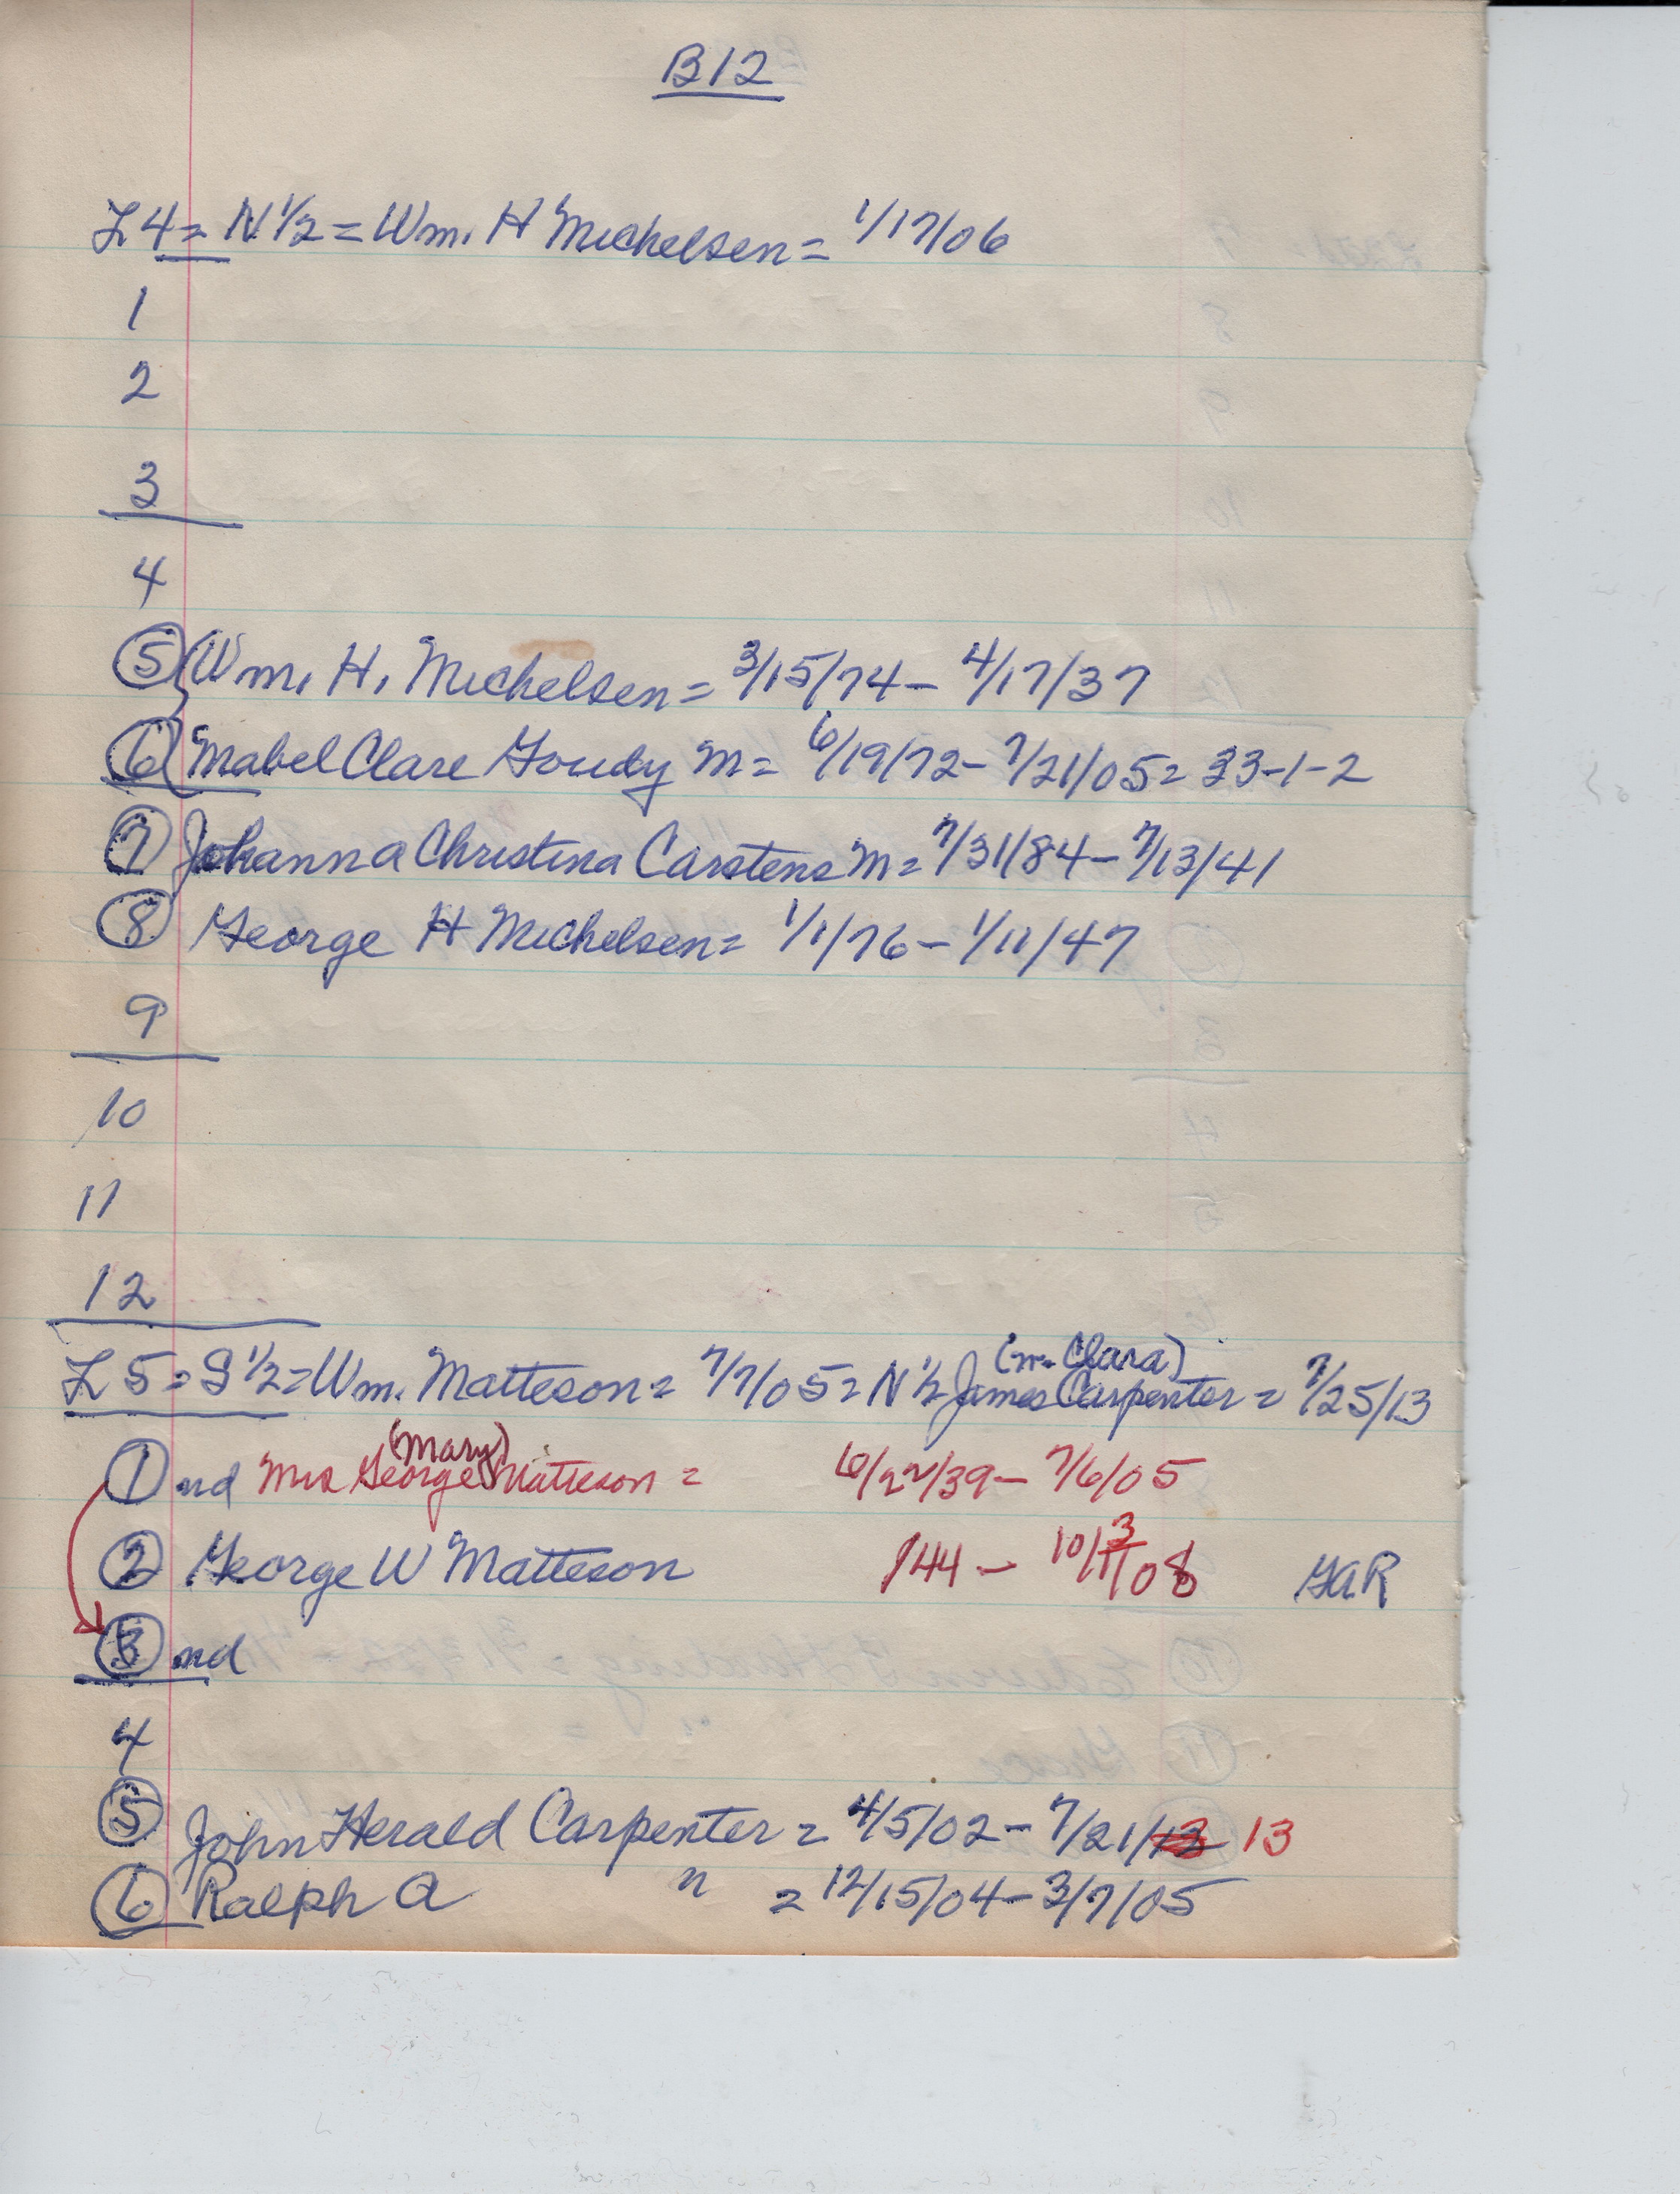 B12
L4 = N 1/2 = Wm. H Michelsen = 1/17/06
1
2
3
4
5 Wm. H. Michelsen = 3/15/74 - 4/17/37
6 Mabel Clare Goudy M = 6/19/72 - 7/21/05 = 33-1-2
7 Johanna Christina Carstens M = 7/31/84 - 7/13/41
8 George H Michelsen = 1/1/76 - 1/11/47
9
10
11
12
(m. Clara)
L5 = S 1/2 = Wm. Matteson = 7/7/05 = N 1/2 James Carpenter = 7/25/13
(Mary)
1 nd Mrs George Matteson = 6/22/39 - 7/6/05
2 George W Matteson /44 - 10/3/08 GAR
3 nd
4
5 John Herald Carpenter = 4/5/02 - 7/21/13 13
6 Ralph A " = 12/15/04 - 3/7/05